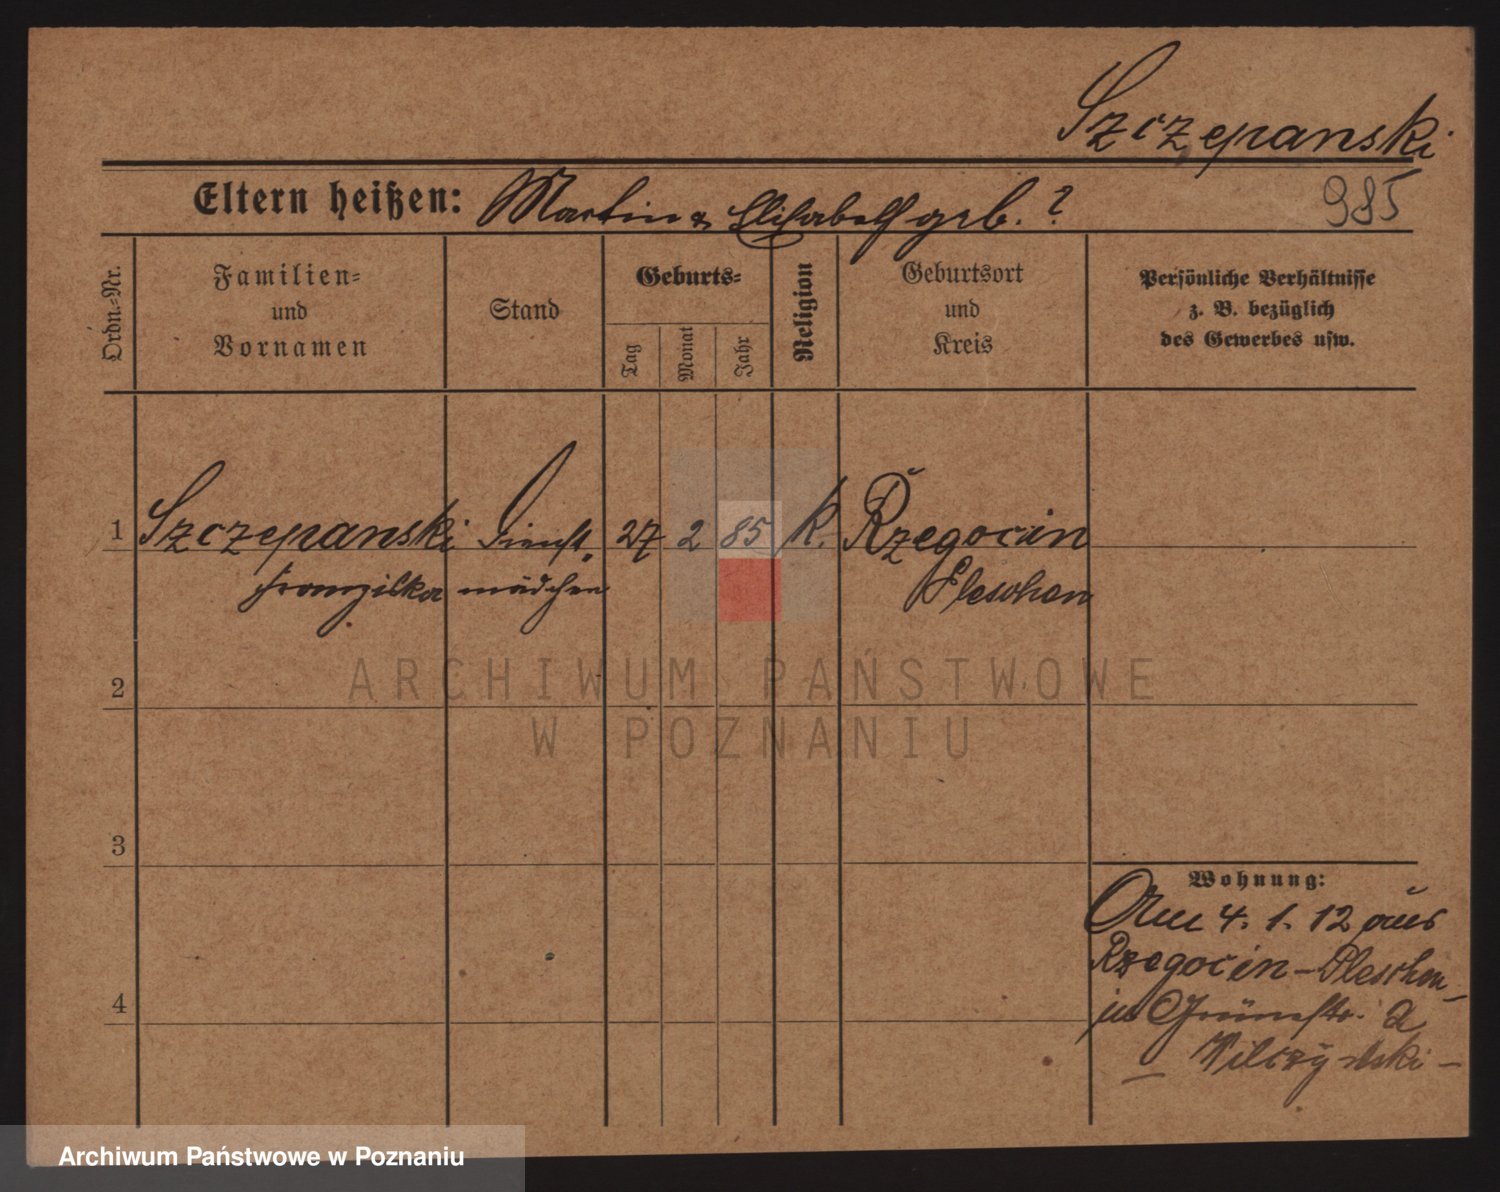 Szczepanski
Eltern heißen: Martin & Elisabeth geb. ?
985
Ordn.=Nr.
Familien=
und
Vornamen
Stand
Geburts=
Tag
Monat
Jahr
Religion
Geburtsort
und
Kreis
Persönliche Verhältnisse
z. B. bezüglich
des Gewerbes usw.
1 Szczepanski Dienst- 27 2 85 K. Rzegocin
Franziska mädchen Pleschen
2
3
4
Wohnung:
Am 4. 1. 12 aus
Rzegocin - Pleschen -
in Grünestr. 2
Wilczynski -
ARCHIWUM PAŃSTWOWE
W POZNANIU
Archiwum Państwowe w Poznaniu